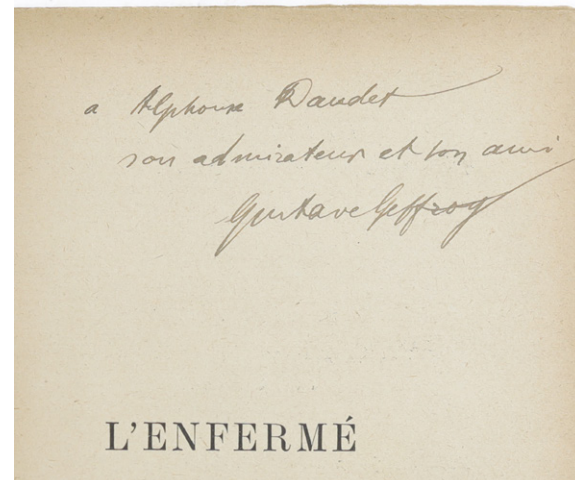 a Alphonse Daudet
son admirateur et son ami
Gustave Geffroy
L'ENFERMÉ